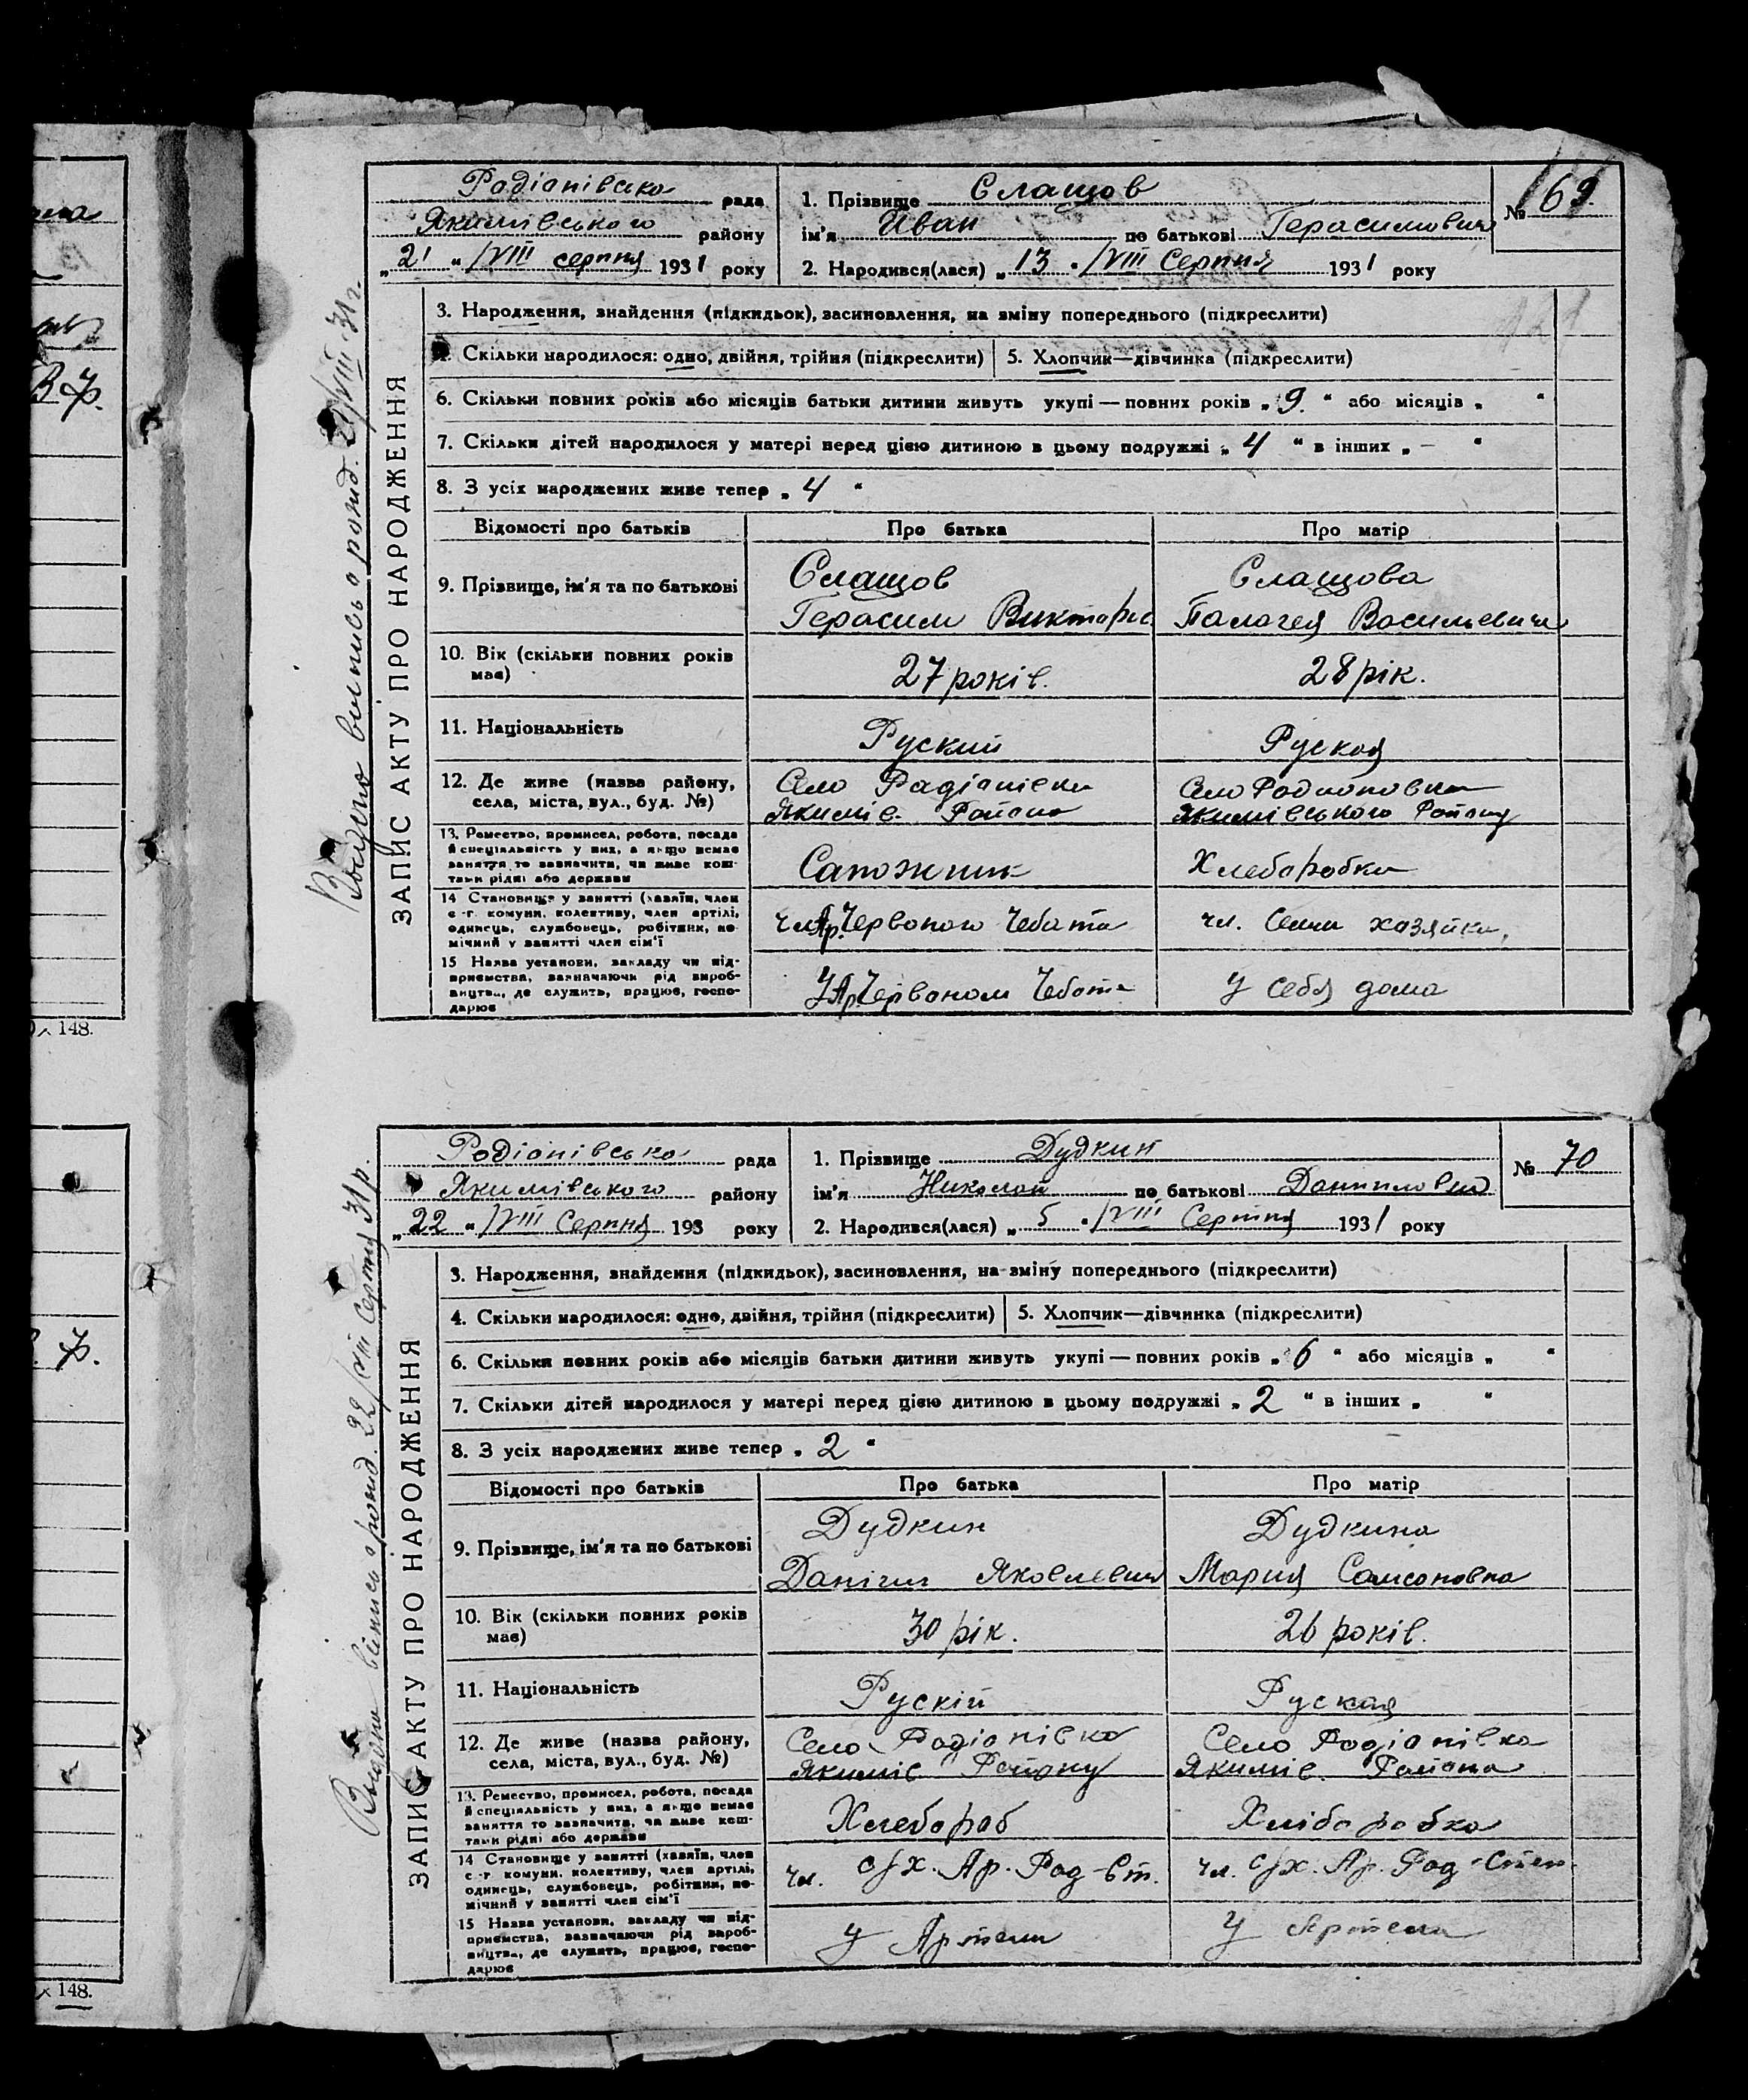 Родіонівська рада
Якимівського району
„21“ /VIII серпня 1931 року
1. Прізвище Слащов
ім'я Иван по батькові Герасимович
2. Народився(лася) „13“ /VIII Серпня 1931 року
№ 69
ЗАПИС АКТУ ПРО НАРОДЖЕННЯ
3. Народження, знайдення (підкидьок), засиновлення, на зміну попереднього (підкреслити)
Скільки народилося: одно, двійня, трійня (підкреслити) 5. Хлопчик—дівчинка (підкреслити)
6. Скільки повних років або місяців батьки дитини живуть укупі — повних років „9.“ або місяців „ “
7. Скільки дітей народилося у матері перед цією дитиною в цьому подружжі „4“ в інших „–“
8. З усіх народжених живе тепер „4“
Відомості про батьків Про батька Про матір
9. Прізвище, ім'я та по батькові
Слащов
Герасим Викторов.
Слащова
Палагея Васильевича
10. Вік (скільки повних років
має)
27 років.
28 рік.
11. Національність Руский Руская
12. Де живе (назва району,
села, міста, вул., буд. №)
Село Радіонівка
Якимів. Района
Село Родионовка
Якимівського Району
13. Ремество, промисел, робота, посада
й спеціальність у них, а якщо немає
заняття то зазначити, чи живе кош-
тами рідні або держави
Сапожник
Хлеборобка
14 Становище у занятті (хазяїн, член
с.-г. комуни, колективу, член артілі,
одинець, службовець, робітник, по-
мічний у занятті член сім'ї
чл. Ар. Червоного Чебота
чл. Семи хазяйка.
15 Назва установи, закладу чи під-
приємства, зазначаючи рід вироб-
ництва, де служить, працює, госпо-
дарює
У Ар. Червоном Чебота
У себя дома
Родіонівська рада
Якимівського району
„22“ /VIII Серпня 193 року
1. Прізвище Дудкин
ім'я Николай по батькові Данилович
2. Народився(лася) „5“ /VIII Серпня 1931 року
№ 70
ЗАПИС АКТУ ПРО НАРОДЖЕННЯ
3. Народження, знайдення (підкидьок), засиновлення, на зміну попереднього (підкреслити)
4. Скільки народилося: одно, двійня, трійня (підкреслити) 5. Хлопчик—дівчинка (підкреслити)
6. Скільки повних років або місяців батьки дитини живуть укупі — повних років „6“ або місяців „ “
7. Скільки дітей народилося у матері перед цією дитиною в цьому подружжі „2“ в інших „ “
8. З усіх народжених живе тепер „2“
Відомості про батьків Про батька Про матір
9. Прізвище, ім'я та по батькові
Дудкин
Даніил Яковлевич
Дудкина
Мария Самсоновна
10. Вік (скільки повних років
має)
30 рік.
26 років.
11. Національність Рускій Руская
12. Де живе (назва району,
села, міста, вул., буд. №)
Село Родіонівка
Якимів Району
Село Родіонівка
Якимів. Района
13. Ремество, промисел, робота, посада
й спеціальність у них, а якщо немає
заняття то зазначити, чи живе кош-
тами рідні або держави
Хлебороб
Хліборобка
14 Становище у занятті (хазяїн, член
с.-г. комуни, колективу, член артілі,
одинець, службовець, робітник, по-
мічний у занятті член сім'ї
чл. с/х. Ар. Рад-Ст.
чл. с/х. Ар. Рад-Степ.
15 Назва установи, закладу чи під-
приємства, зазначаючи рід вироб-
ництва, де служить, працює, госпо-
дарює
У Артели
У Артели
148.
148.